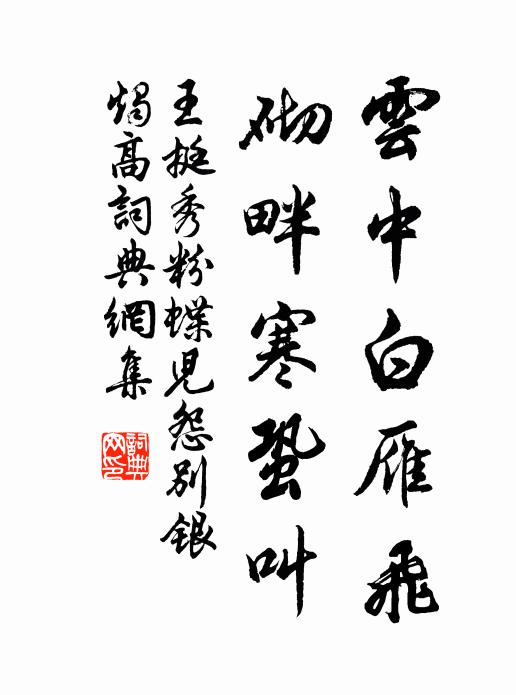 雲中白雁飛
砌畔寒蛩叫
王挺秀粉蝶兒怨別銀
燭高詞典網集
詞典網印